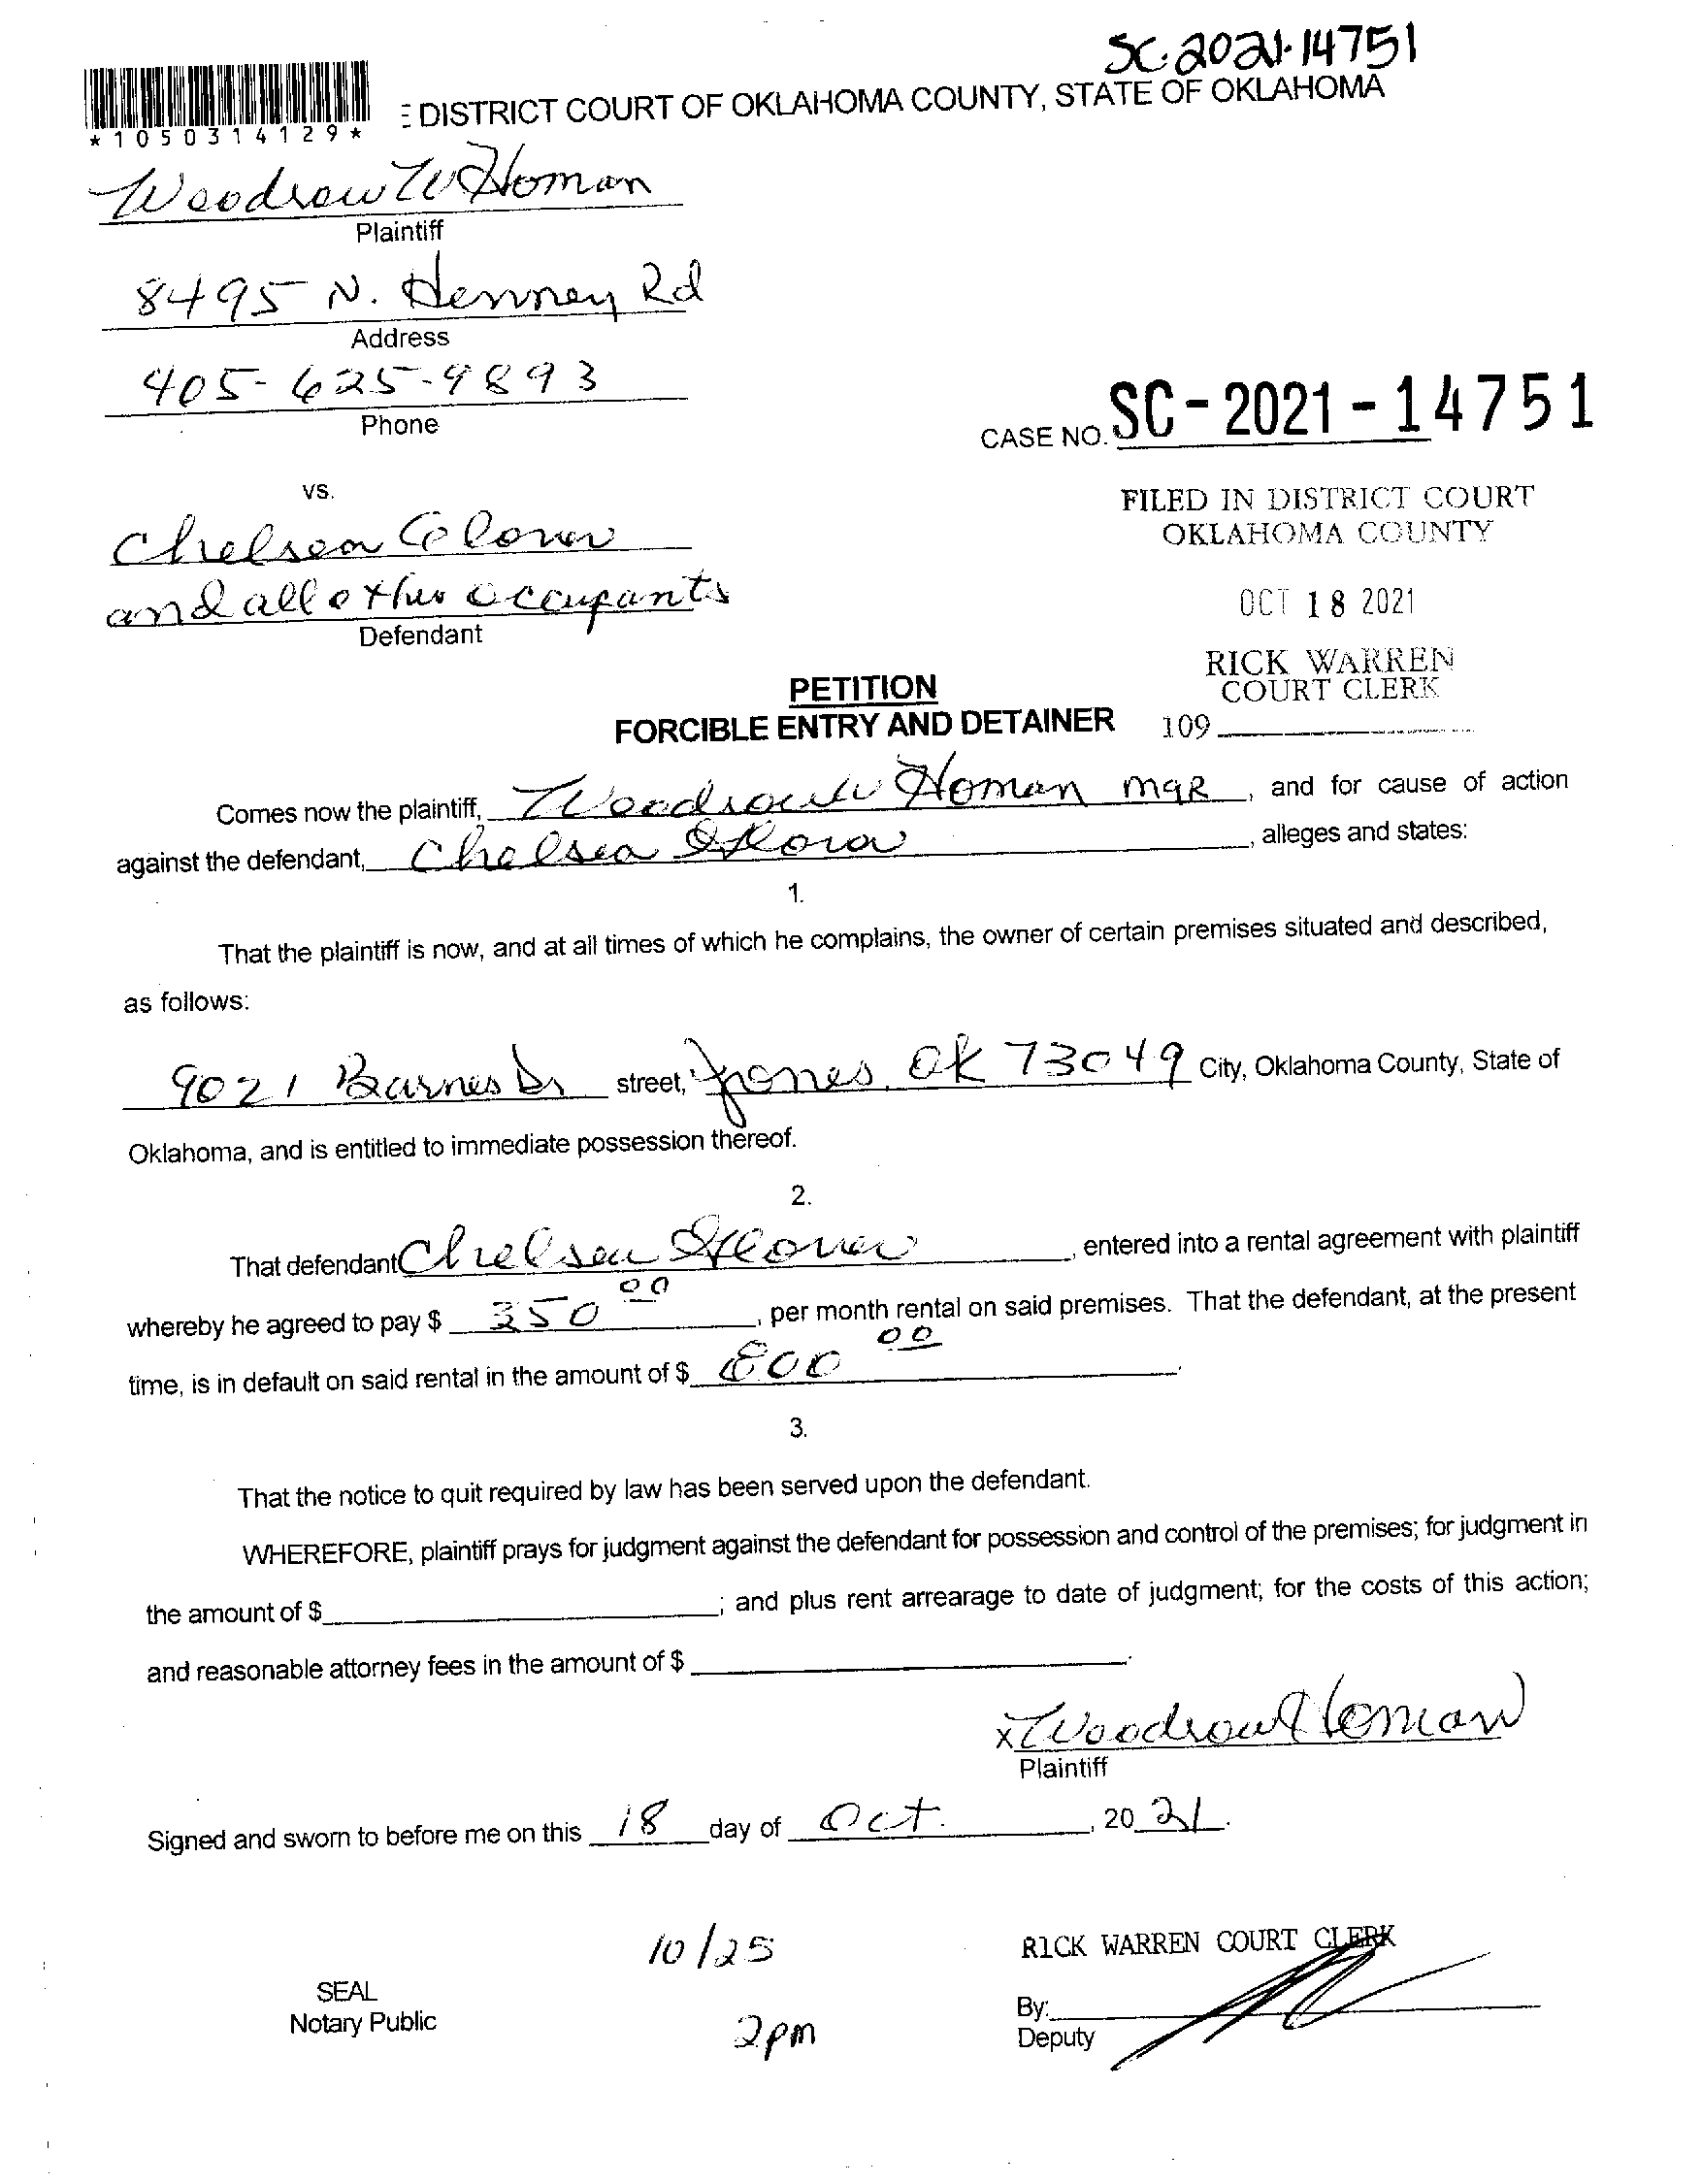 SC-2021-14751
E DISTRICT COURT OF OKLAHOMA COUNTY, STATE OF OKLAHOMA
*1050314129*
Woodrow W Homan
Plaintiff
8495 N. Henney Rd
Address
405-625-9893
Phone
CASE NO. SC-2021-14751
vs.
FILED IN DISTRICT COURT
OKLAHOMA COUNTY
Chelsea
and all other occupants
Defendant
OCT 18 2021
RICK WARREN
COURT CLERK
109
PETITION
FORCIBLE ENTRY AND DETAINER
Comes now the plaintiff, Woodrow W Homan MgR, and for cause of action
against the defendant, Chelsea, alleges and states:
1.
That the plaintiff is now, and at all times of which he complains, the owner of certain premises situated and described,
as follows:
9021 Barnes Dr street, Jones, OK 73049 City, Oklahoma County, State of
Oklahoma, and is entitled to immediate possession thereof.
2.
That defendant Chelsea, entered into a rental agreement with plaintiff
whereby he agreed to pay $ 350 00, per month rental on said premises. That the defendant, at the present
time, is in default on said rental in the amount of $ 800 00.
3.
That the notice to quit required by law has been served upon the defendant.
WHEREFORE, plaintiff prays for judgment against the defendant for possession and control of the premises; for judgment in
the amount of $ ; and plus rent arrearage to date of judgment; for the costs of this action;
and reasonable attorney fees in the amount of $ .
x Woodrow Homan
Plaintiff
Signed and sworn to before me on this 18 day of Oct., 20 21.
10/25
RICK WARREN COURT CLERK
SEAL
Notary Public
2pm
By:
Deputy